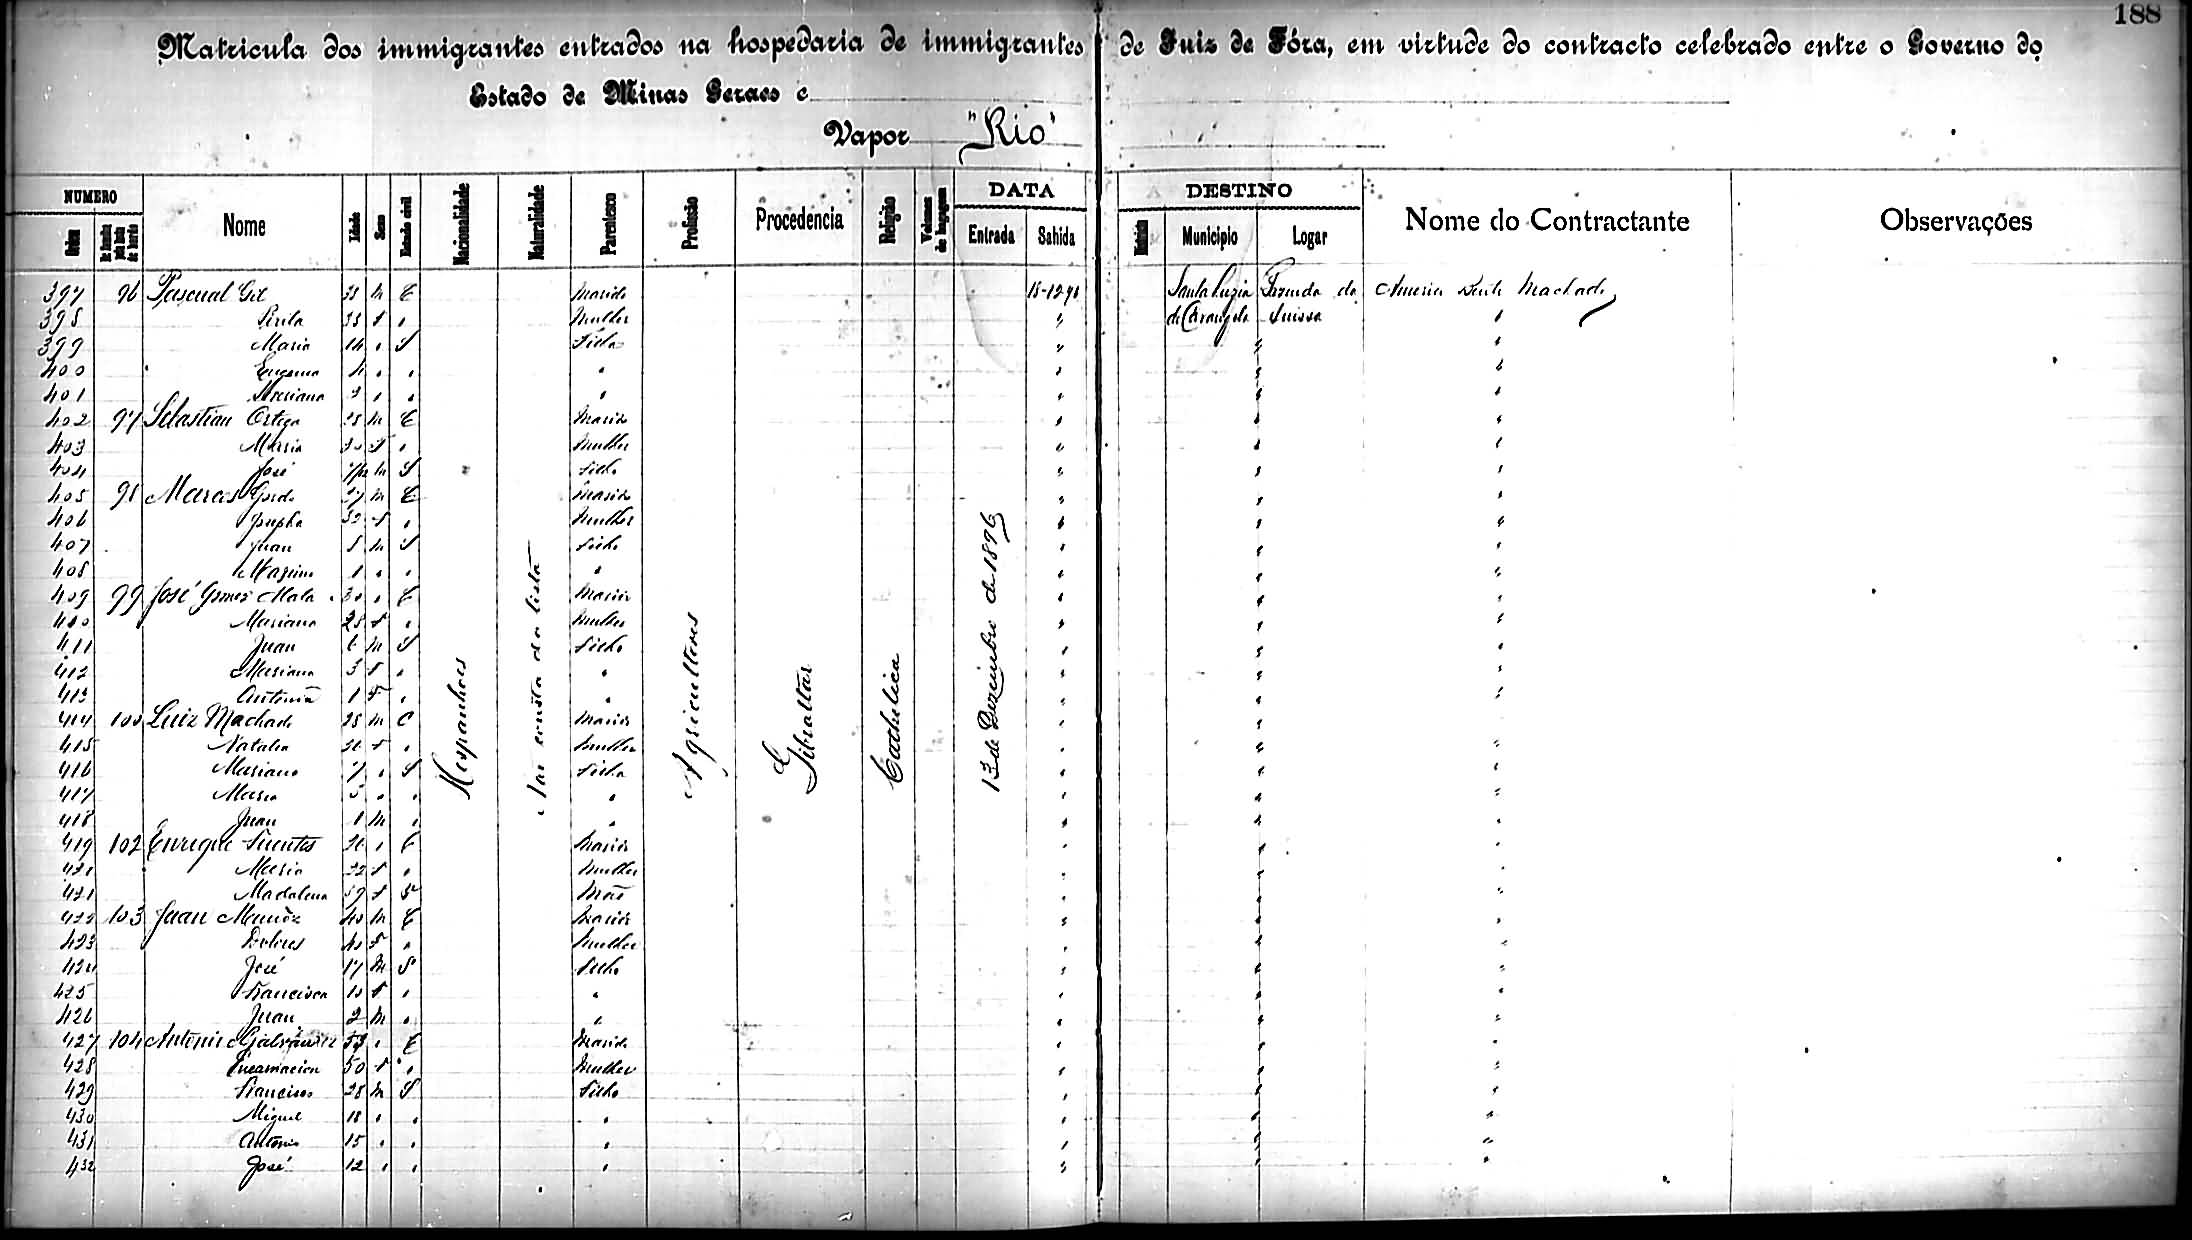 188
Matricula dos immigrantes entrados na hospedaria de immigrantes de Juiz de Fóra, em virtude do contracto celebrado entre o Governo do
Estado de Minas Geraes e
Vapor "Rio"
NUMERO Nome Idade Sexo Estado civil Nacionalidade Naturalidade Parentesco Profissão Procedencia Religião Volumes de bagagem DATA DESTINO Nome do Contractante Observações
Ordem de familia pela lista de bordo Entrada Sahida Districto Municipio Logar
Hespanhoes Não consta da lista Agricultores Gibraltar Catholica 13 de Dezembro de 1896
397 96 Pascual Gil M C Marido Santa Luzia Fazenda da Machado
398 " Mulher " do Carangola Suissa "
399 Maria 14 " S Filha " " "
400 Eugenia " " " " " "
401 Mariana " " " " " "
402 97 Sebastian Ortega M C Marido " " "
403 Maria 30 " Mulher " " "
404 José M S Filho " " "
405 98 Marcos M C Marido " " "
406 Josepha " Mulher " " "
407 Juan M S Filho " " "
408 1 " " " " " "
409 99 José Gomes Mata 30 " C Marido " " "
410 Mariana 28 F " Mulher " " "
411 Juan 6 M S Filho " " "
412 Mariana 3 F " " " " "
413 Antonia 1 F " " " " "
414 100 Luiz Machado 28 M C Marido " " "
415 Natalia F " Mulher " " "
416 Mariana 7 " S Filha " " "
417 Maria " " " " " "
418 Juan 1 M " " " " "
419 102 Enrique Fuentes " C Marido " " "
420 Maria 22 F " Mulher " " "
421 Madalena 59 F Mãe " " "
422 103 Juan Muñoz 40 M C Marido " " "
423 Dolores 40 F " Mulher " " "
424 José 17 M S Filho " " "
425 Francisca 10 F " " " " "
426 Juan 2 M " " " " "
427 104 Antonio " C Marido " " "
428 Encarnacion 50 F " Mulher " " "
429 Francisco 28 M S Filho " " "
430 Miguel 18 " " " " " "
431 Antonio 15 " " " " " "
432 José 12 " " " " " "